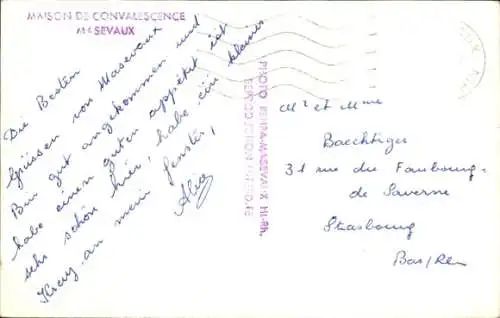 MAISON DE CONVALESCENCE
MASEVAUX
Die Besten
Grüssen von Masevaux
Bin gut angekommen und
habe einen guten appetit ist
sehr schön hier, habe ein kleines
Kreuz an mein fenster,
Alice
PHOTO KEMPA-MASEVAUX Ht-Rh.
REPRODUCTION INTERDITE
Mr et Mme
Baechtiger
31 rue du Faubourg-
de Saverne
Strasbourg
Bas/Rhin